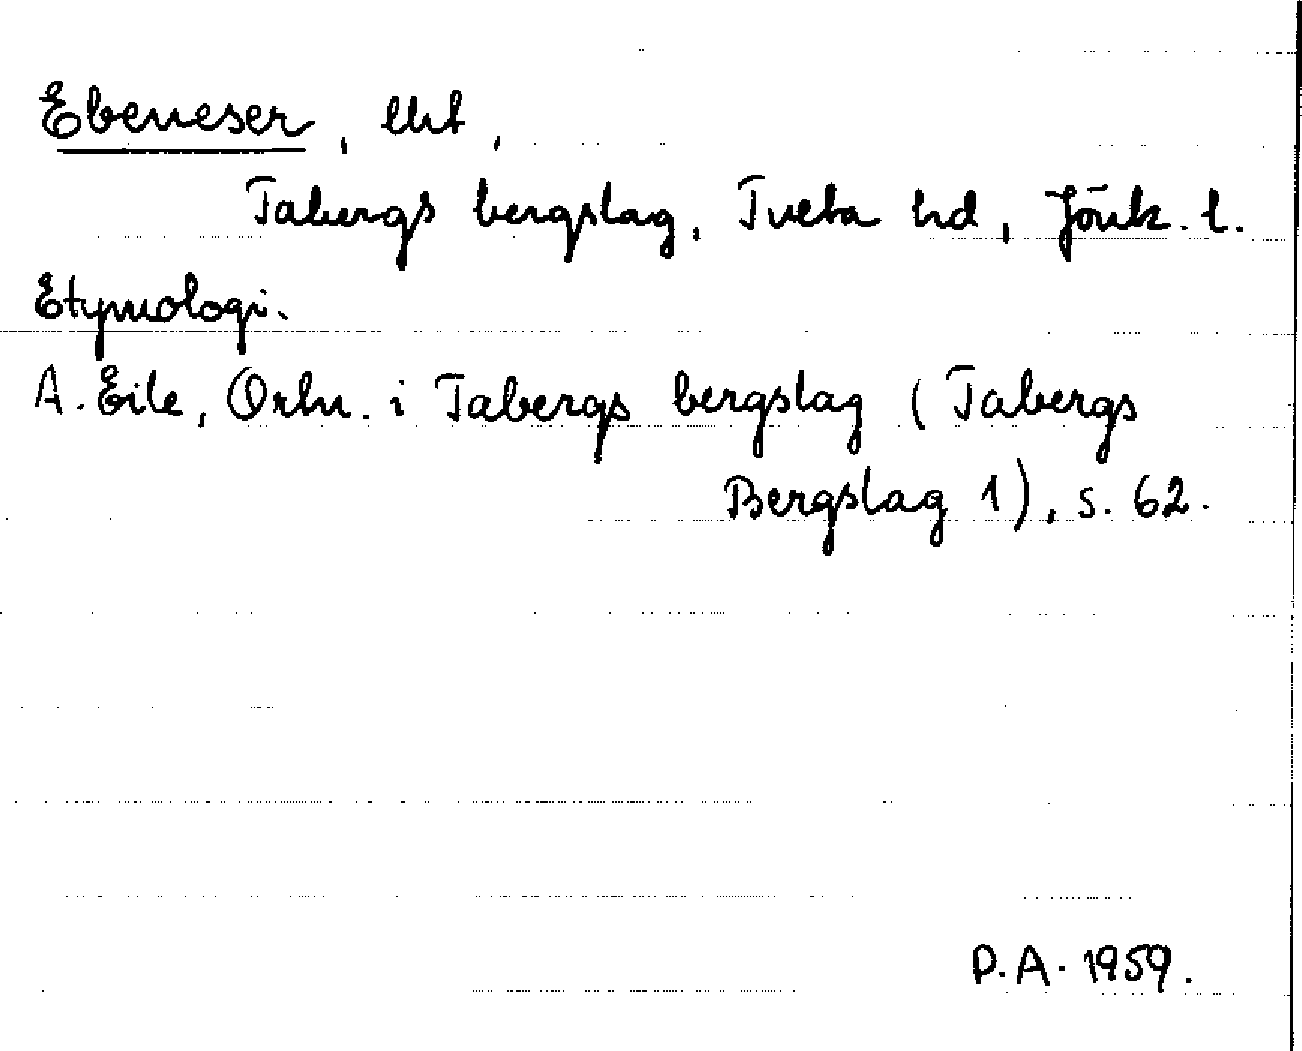 Ebeneser, lht,
Tabergs bergslag, Tveta hd, Jönk. l.
Etymologi.
A. Eile, Ortn. i Tabergs bergslag (Tabergs
Bergslag 1), s. 62.
P.A. 1959.